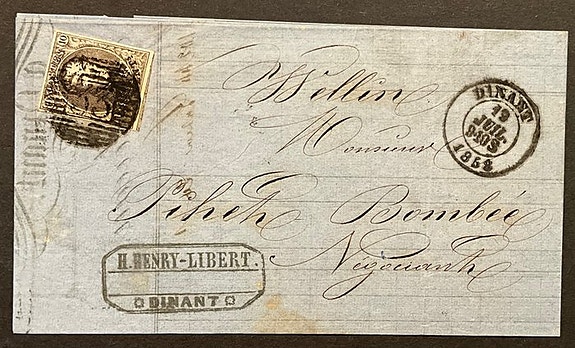 10
Wellin
Monsieur
Pihet Bombée
Négociant
DINANT
19
JUIL
1858
H. HENRY-LIBERT.
DINANT